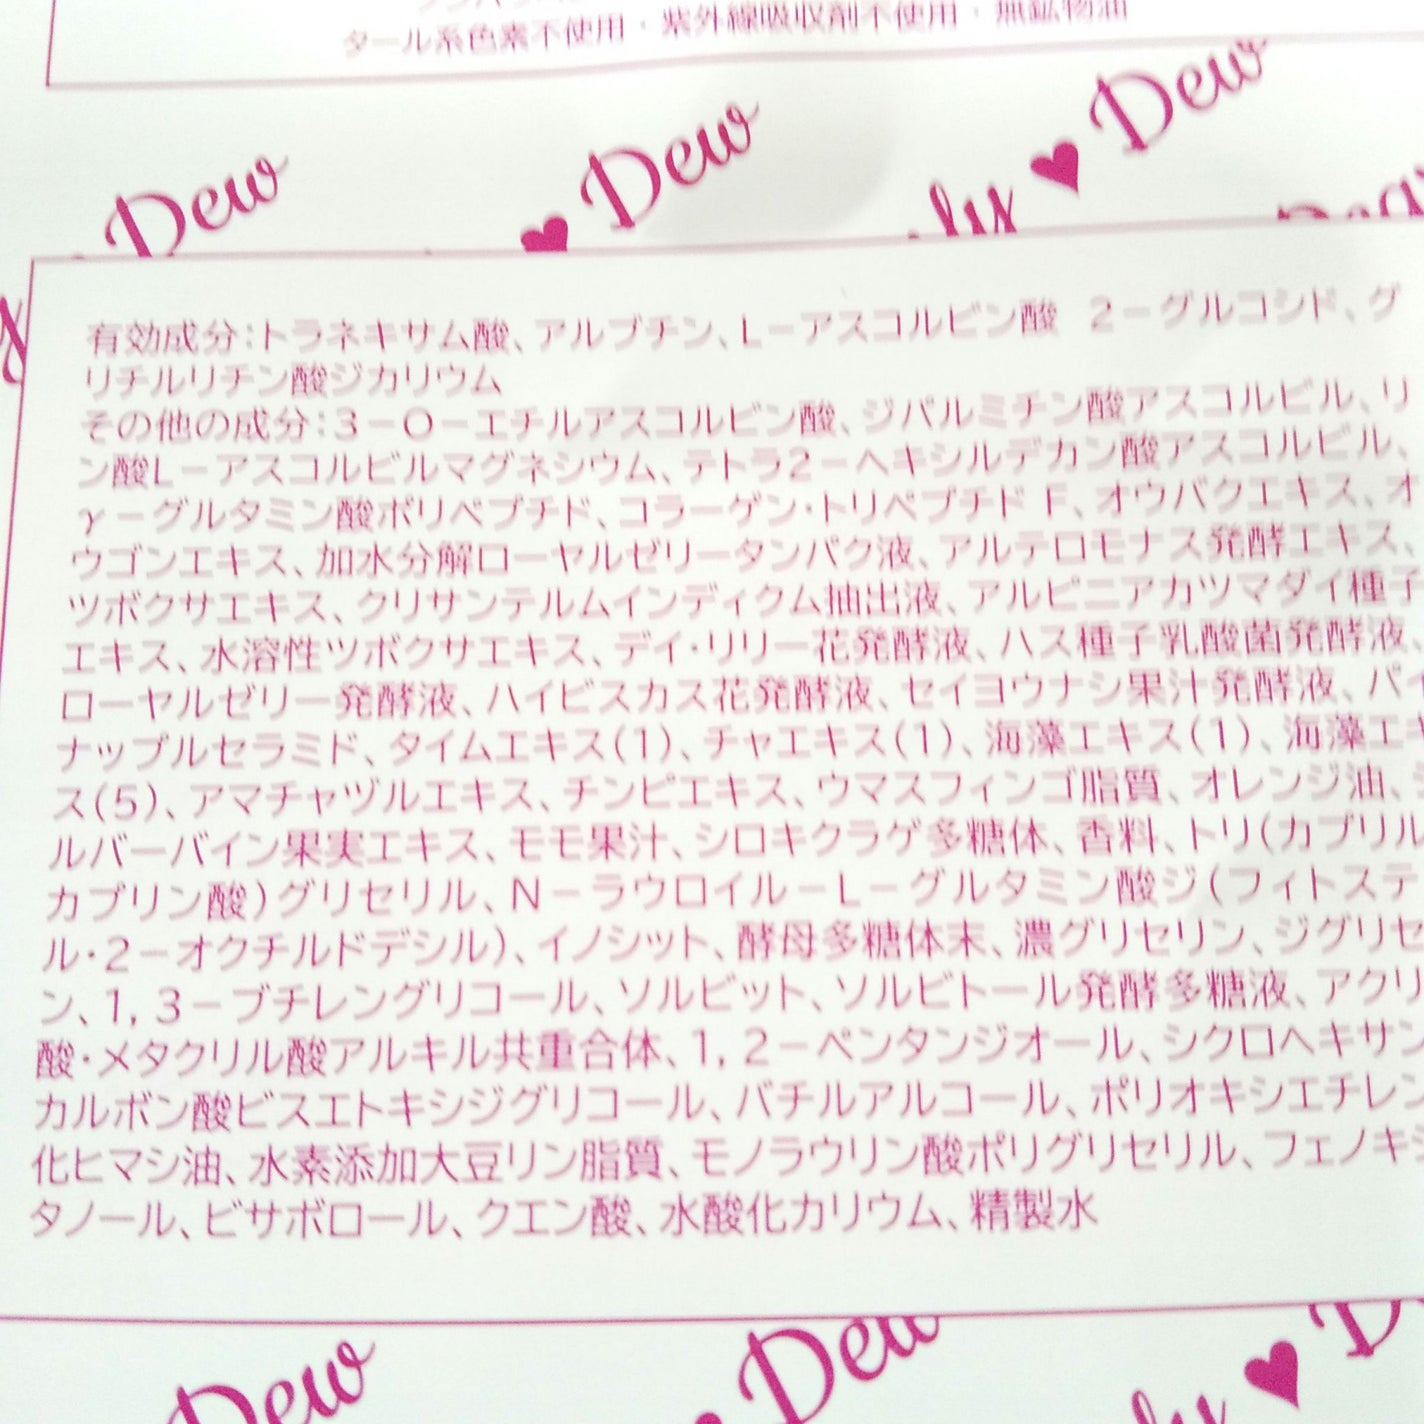 タール系色素不使用・紫外線吸収剤不使用・無鉱物油
Dew
♥ Dew
♥ Dew
有効成分：トラネキサム酸、アルブチン、L－アスコルビン酸 2－グルコシド、グ
リチルリチン酸ジカリウム
その他の成分：3－O－エチルアスコルビン酸、ジパルミチン酸アスコルビル、リ
ン酸L－アスコルビルマグネシウム、テトラ2－ヘキシルデカン酸アスコルビル、
γ－グルタミン酸ポリペプチド、コラーゲン・トリペプチド F、オウバクエキス、オ
ウゴンエキス、加水分解ローヤルゼリータンパク液、アルテロモナス発酵エキス、
ツボクサエキス、クリサンテルムインディクム抽出液、アルピニアカツマダイ種子
エキス、水溶性ツボクサエキス、デイ・リリー花発酵液、ハス種子乳酸菌発酵液、
ローヤルゼリー発酵液、ハイビスカス花発酵液、セイヨウナシ果汁発酵液、パイ
ナップルセラミド、タイムエキス(1)、チャエキス(1)、海藻エキス(1)、海藻エキ
ス(5)、アマチャヅルエキス、チンピエキス、ウマスフィンゴ脂質、オレンジ油、
ルバーバイン果実エキス、モモ果汁、シロキクラゲ多糖体、香料、トリ(カプリル
カプリン酸)グリセリル、N－ラウロイル－L－グルタミン酸ジ(フィトステ
ル・2－オクチルドデシル)、イノシット、酵母多糖体末、濃グリセリン、ジグリセ
ン、1，3－ブチレングリコール、ソルビット、ソルビトール発酵多糖液、アクリ
酸・メタクリル酸アルキル共重合体、1，2－ペンタンジオール、シクロヘキサン
カルボン酸ビスエトキシジグリコール、バチルアルコール、ポリオキシエチレン
化ヒマシ油、水素添加大豆リン脂質、モノラウリン酸ポリグリセリル、フェノキシ
タノール、ビサボロール、クエン酸、水酸化カリウム、精製水
Dew
Dew
♥